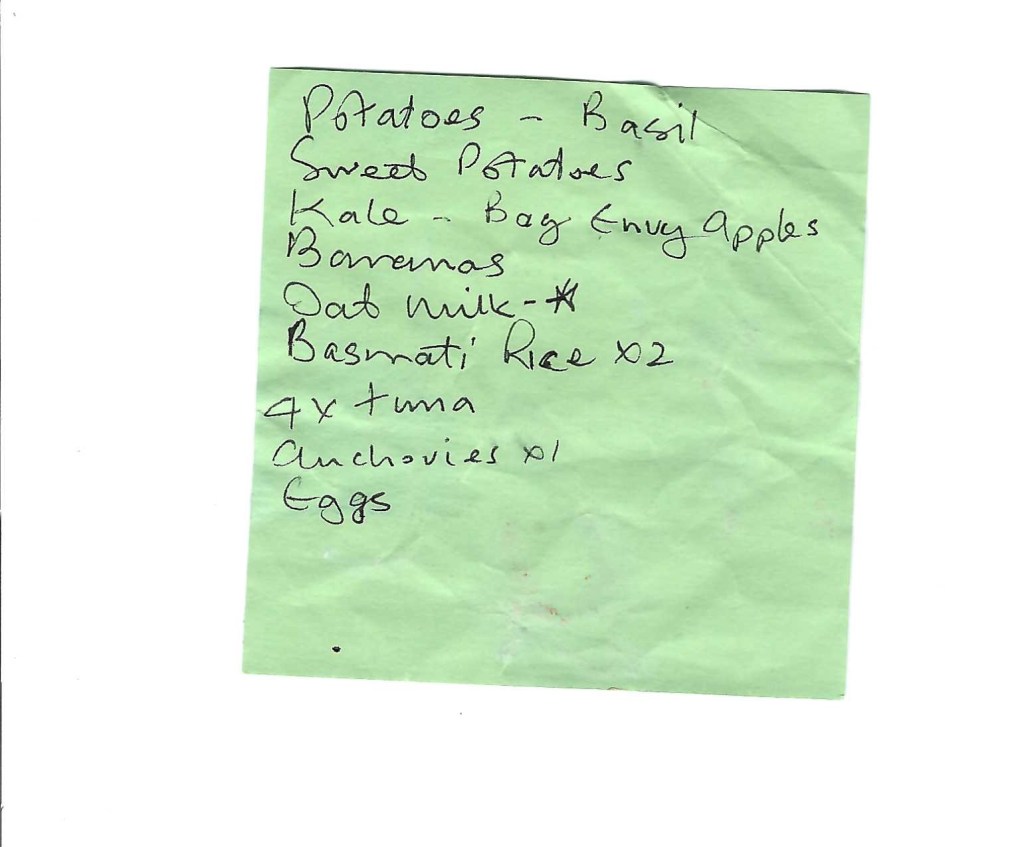 Potatoes - Basil
Sweet Potatoes
Kale - Bag Envy apples
Bananas
Oat milk - *
Basmati Rice x2
4x tuna
anchovies x1
Eggs